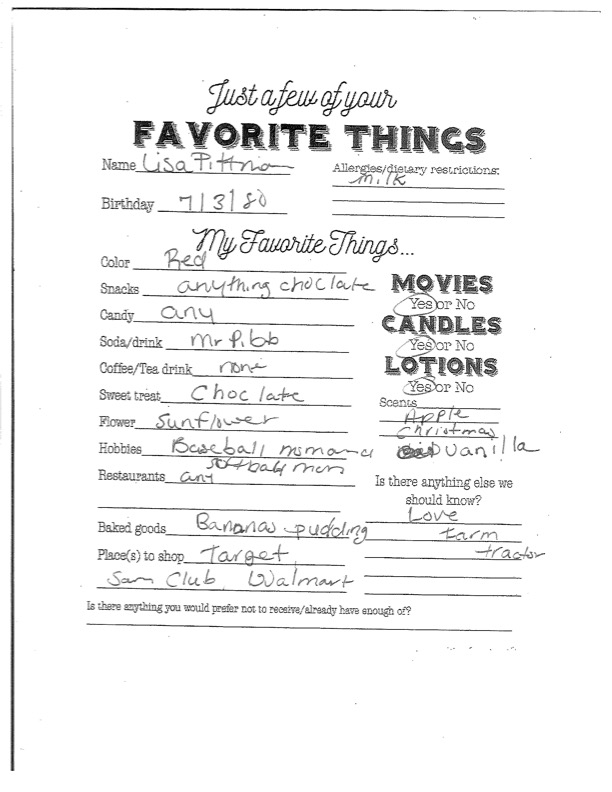 Just a few of your
FAVORITE THINGS
Name Lisa Pittman
Allergies/dietary restrictions:
milk
Birthday 7/3/80
My Favorite Things...
Color Red
Snacks anything choclate
MOVIES
Yes or No
Candy any
CANDLES
Soda/drink Mr Pibb
Yes or No
Coffee/Tea drink none
LOTIONS
Yes or No
Sweet treat Choclate
Scents Apple
Flower Sunflower
Christmas
Hobbies Baseball mom and
Vanilla
softball mom
Restaurants any
Is there anything else we
should know?
Love
Baked goods Bananas pudding
farm
Place(s) to shop Target
tractor
Sam Club, Walmart
Is there anything you would prefer not to receive/already have enough of?